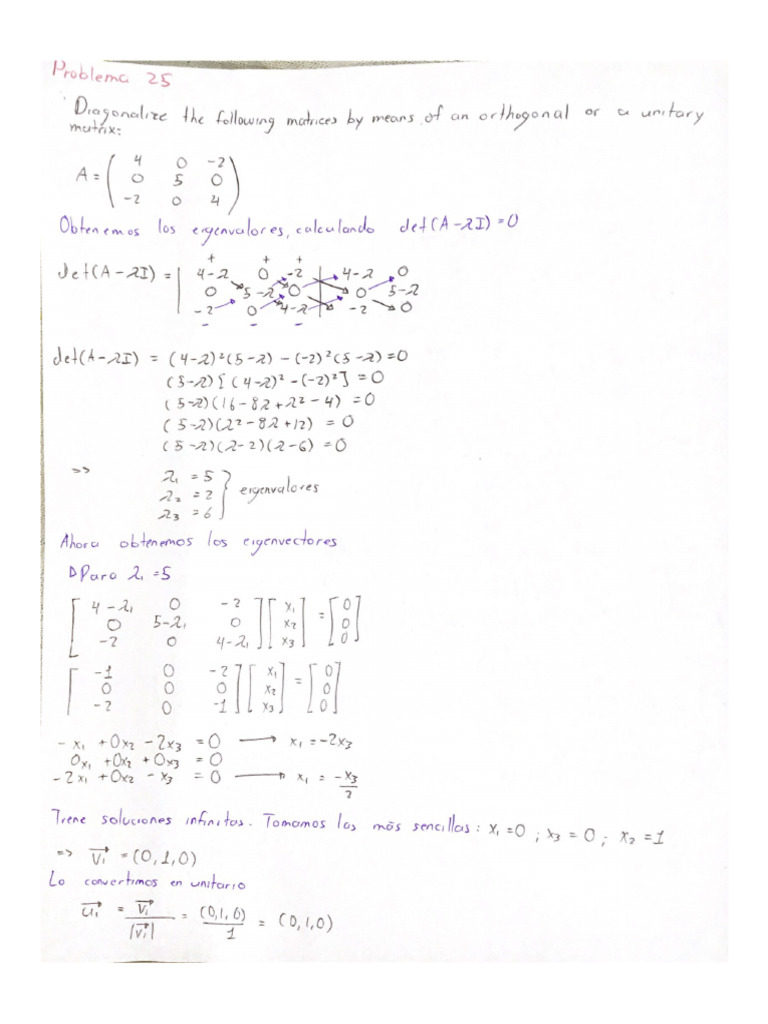 Problema 25
Diagonalize the following matrices by means of an orthogonal or a unitary
matrix:
A = ( 4 0 -2
0 5 0
-2 0 4 )
Obtenemos los eigenvalores, calculando det(A-λI)=0
+ + +
det(A-λI) = | 4-λ 0 -2 | 4-λ 0
0 5-λ 0 | 0 5-λ
-2 0 4-λ | -2 0
- - -
det(A-λI) = (4-λ)²(5-λ) - (-2)²(5-λ) = 0
(5-λ)[(4-λ)² - (-2)²] = 0
(5-λ)(16-8λ+λ²-4) = 0
(5-λ)(λ²-8λ+12) = 0
(5-λ)(λ-2)(λ-6) = 0
=> λ₁ = 5
λ₂ = 2 } eigenvalores
λ₃ = 6
Ahora obtenemos los eigenvectores
▷Para λ₁ = 5
[ 4-λ₁ 0 -2 ] [ x₁ ] = [ 0 ]
[ 0 5-λ₁ 0 ] [ x₂ ] [ 0 ]
[ -2 0 4-λ₁ ] [ x₃ ] [ 0 ]
[ -1 0 -2 ] [ x₁ ] = [ 0 ]
[ 0 0 0 ] [ x₂ ] [ 0 ]
[ -2 0 -1 ] [ x₃ ] [ 0 ]
-x₁ + 0x₂ - 2x₃ = 0 → x₁ = -2x₃
0x₁ + 0x₂ + 0x₃ = 0
-2x₁ + 0x₂ - x₃ = 0 → x₁ = -x₃/2
Tiene soluciones infinitas. Tomamos las más sencillas: x₁=0 ; x₃=0 ; x₂=1
=> v₁⃗ = (0,1,0)
Lo convertimos en unitario
u₁⃗ = v₁⃗/|v₁⃗| = (0,1,0)/1 = (0,1,0)